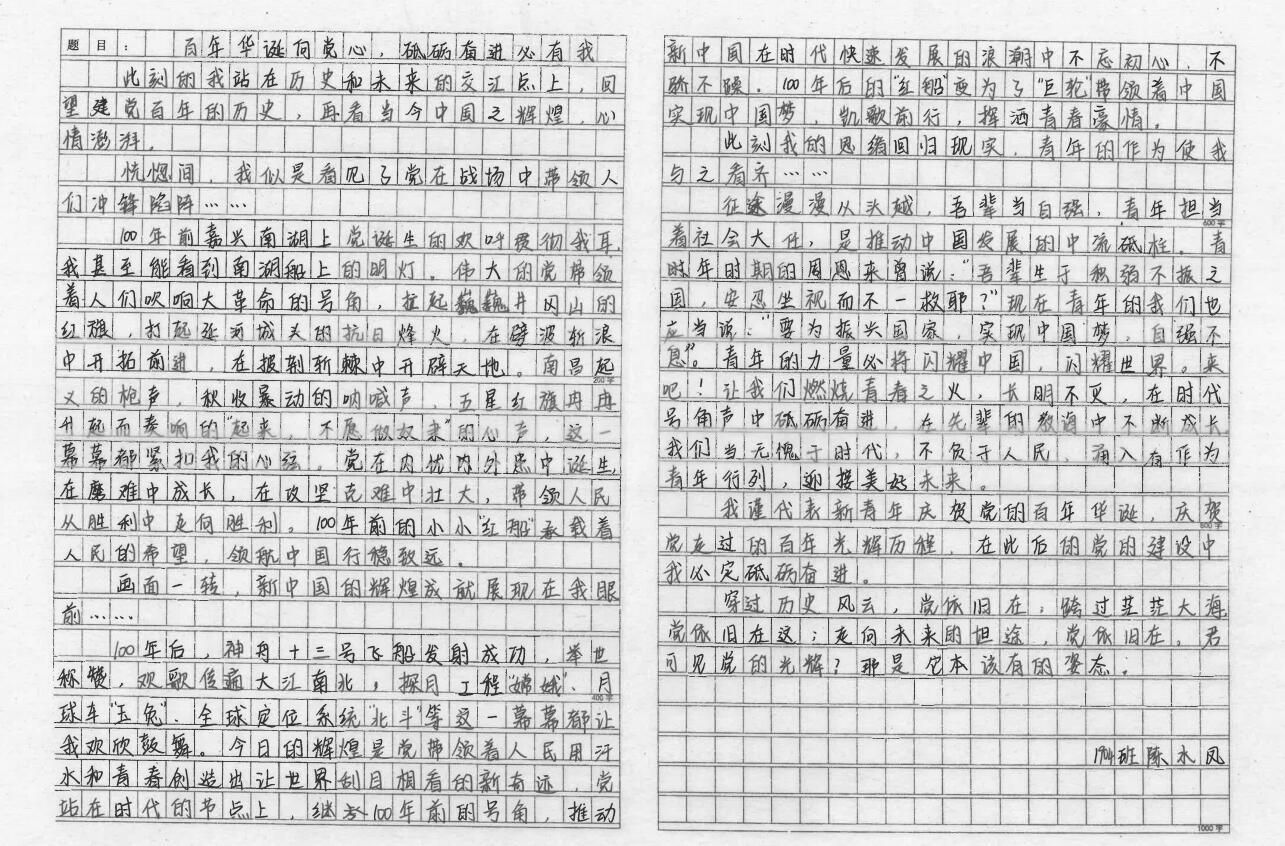 题目：百年华诞向党心，砥砺奋进必有我
此刻的我站在历史和未来的交汇点上，回
望建党百年的历史，再看当今中国之辉煌，心
情澎湃。
恍惚间，我似是看见了党在战场中带领人
们冲锋陷阵……
100年前嘉兴南湖上党诞生的欢呼贯彻我耳，
我甚至能看到南湖船上的明灯。伟大的党带领
着人们吹响大革命的号角，扛起巍巍井冈山的
红旗，打起延河城头的抗日烽火，在劈波斩浪
中开拓前进，在披荆斩棘中开辟天地。南昌起
200字
义的枪声，秋收暴动的呐喊声，五星红旗冉冉
升起而奏响的“起来，不愿做奴来”的心声，这一
幕幕都紧扣我的心弦。党在内忧内外患中诞生，
在磨难中成长，在攻坚克难中壮大，带领人民
从胜利中走向胜利。100年前的小小“红船”承载着
人民的希望，领航中国行稳致远。
画面一转，新中国的辉煌成就展现在我眼
前……
100年后，神舟十三号飞船发射成功，举世
称赞，欢歌传遍大江南北，探月工程“嫦娥”、月
400字
球车“玉兔”、全球定位系统“北斗”等这一幕幕都让
我欢欣鼓舞。今日的辉煌是党带领着人民用汗
水和青春创造出让世界刮目相看的新奇迹，党
站在时代的节点上，继承100年前的号角，推动
新中国在时代快速发展的浪潮中不忘初心，不
骄不躁。100年后的“红船”变为了“巨轮”带领着中国
实现中国梦，凯歌前行，挥洒青春豪情。
此刻我的思绪回归现实，青年的作为使我
与之看齐……
征途漫漫从头越，吾辈当自强，青年担当
600字
着社会大任，是推动中国发展的中流砥柱。青
时年时期的周恩来曾说：“吾辈生于积弱不振之
国，安忍坐视而不一救耶？”现在青年的我们也
应当说：“要为振兴国家，实现中国梦，自强不
息”。青年的力量必将闪耀中国，闪耀世界。来
吧！让我们燃烧青春之火，长明不灭，在时代
号角声中砥砺奋进，在先辈的教诲中不断成长，
我们当无愧于时代，不负于人民，涌入有作为
青年行列，迎接美好未来。
我谨代表新青年庆贺党的百年华诞，庆贺
800字
党走过的百年光辉历程，在此后的党的建设中
我必定砥砺奋进。
穿过历史风云，党依旧在；跨过茫茫大海，
党依旧在这；走向未来的坦途，党依旧在，君
可见党的光辉？那是它本该有的姿态；
1904班陈水风
1000字